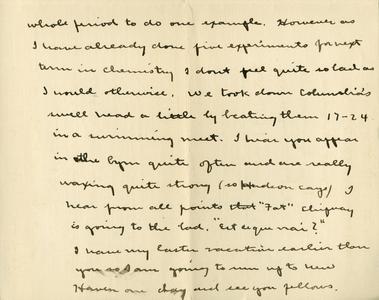 whole period to do one example. However as
I have already done five experiments for next
term in chemistry I dont feel quite so bad as
I would otherwise. We took down Columbia's
swell head a little by beating them 17-24
in a swimming meet. I hear you appear
in the Gym quite often and are really
waxing quite strong (so Hudson says) I
hear from all points that "Fat" Chipway
is going to the bad. "Est ce que vrai?"
I have my Easter vacation earlier than
you so I am going to run up to New
Haven one day and see you fellows.